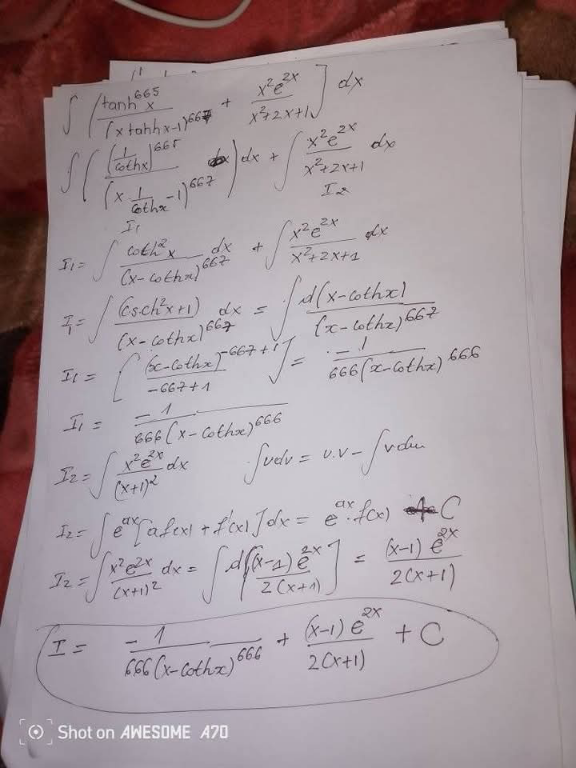 ∫ (tanh^665 x / (x tanhx-1)^667 + x²e^2x / x²+2x+1] dx
∫ ((1/cothx)^665 / (x 1/cothx -1)^667) dx + ∫ x²e^2x / x²+2x+1 dx
I₁ I₂
I₁ = ∫ coth²x / (x-cothx)^667 dx + ∫ x²e^2x / x²+2x+1 dx
I₁ = ∫ (csch²x+1) / (x-cothx)^667 dx = ∫ d(x-cothx) / (x-cothx)^667
I₁ = [ (x-cothx)^-667+1 / -667+1 ] = -1 / 666(x-cothx)^666
I₁ = -1 / 666(x-cothx)^666
I₂ = ∫ x²e^2x / (x+1)² dx ∫udv = u.v - ∫vdu
I₂ = ∫e^ax [af(x) + f'(x)]dx = e^ax.f(x) + C
I₂ = ∫ x²e^2x / (x+1)² dx = ∫ d[(x-1)e^2x / 2(x+1)] = (x-1)e^2x / 2(x+1)
I = -1 / 666(x-cothx)^666 + (x-1)e^2x / 2(x+1) + C
Shot on AWESOME A70